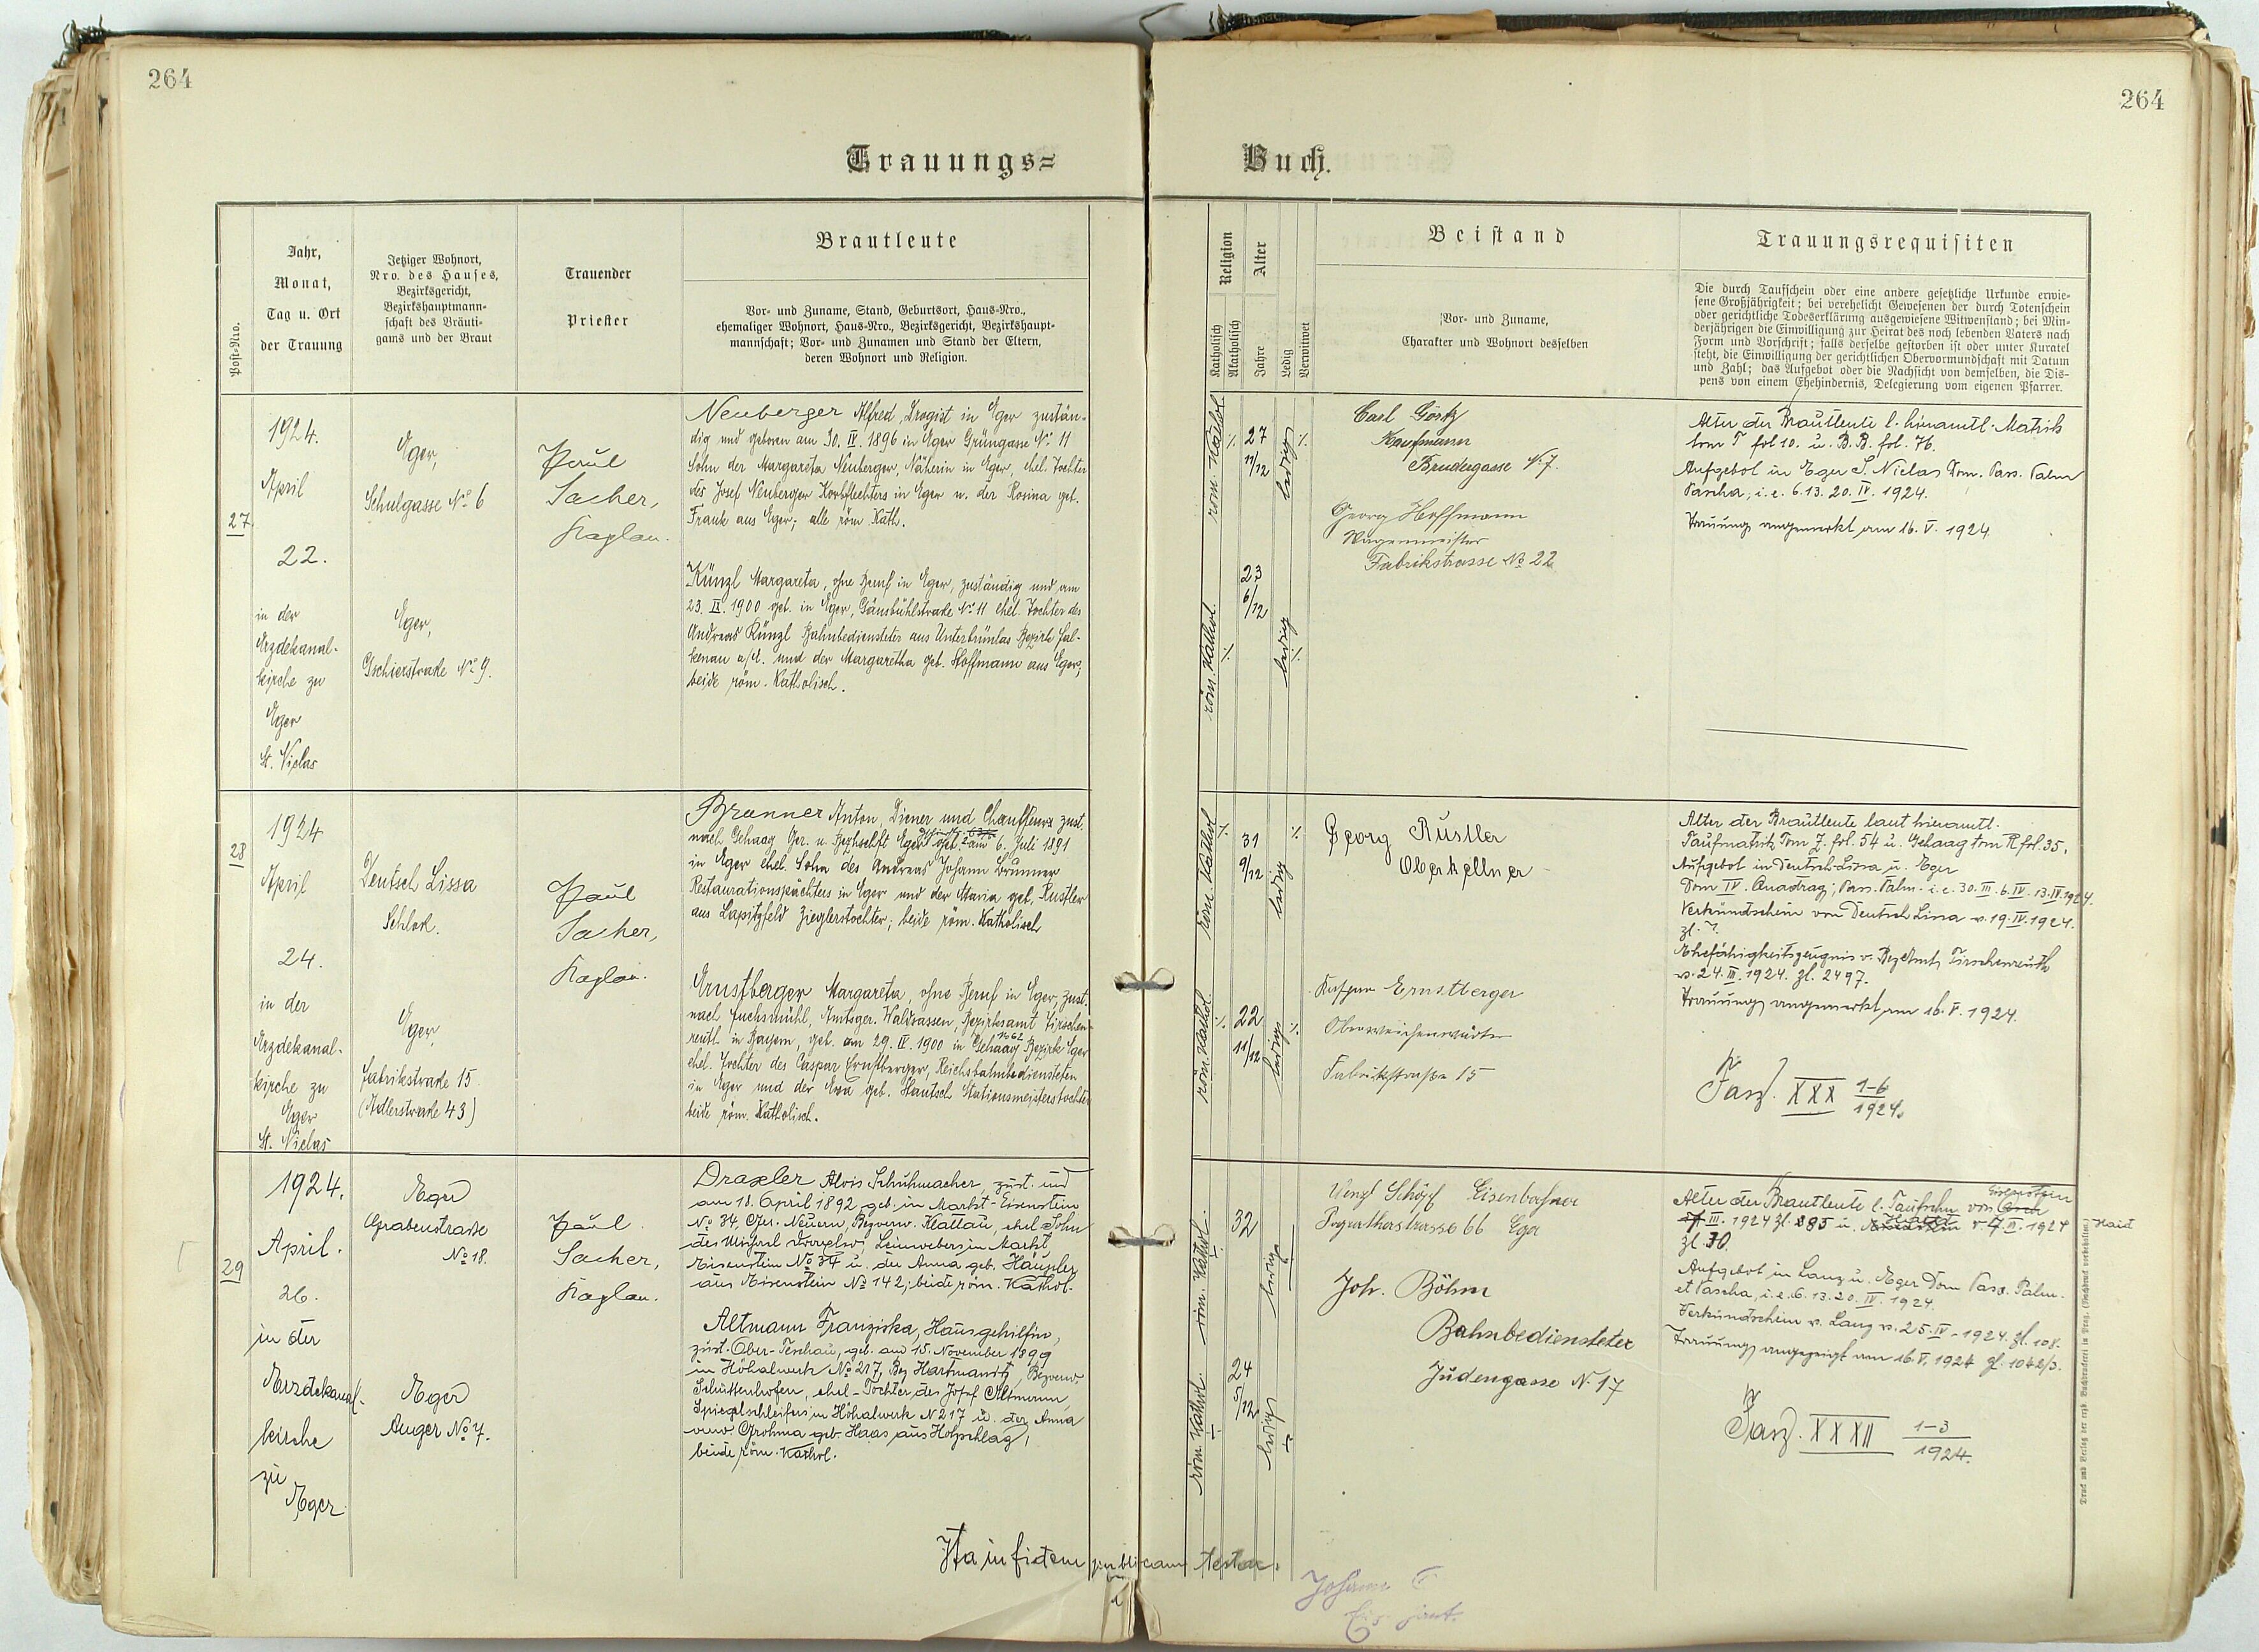 264
264
Trauungs=
Buch.
Post=Nro.
Jahr,
Monat,
Tag u. Ort
der Trauung
Jetziger Wohnort,
Nro. des Hauses,
Bezirksgericht,
Bezirkshauptmann=
schaft des Bräuti=
gams und der Braut
Trauender
Priester
Brautleute
Vor= und Zuname, Stand, Geburtsort, Haus=Nro.,
ehemaliger Wohnort, Haus=Nro., Bezirksgericht, Bezirkshaupt=
mannschaft; Vor= und Zunamen und Stand der Eltern,
deren Wohnort und Religion.
Religion
Katholisch
Akatholisch
Alter
Jahre
Ledig
Verwitwet
Beistand
Vor= und Zuname,
Charakter und Wohnort desselben
Trauungsrequisiten
Die durch Taufschein oder eine andere gesetzliche Urkunde erwie=
sene Großjährigkeit; bei verehelicht Gewesenen der durch Totenschein
oder gerichtliche Todeserklärung ausgewiesene Witwenstand; bei Min=
derjährigen die Einwilligung zur Heirat des noch lebenden Vaters nach
Form und Vorschrift; falls derselbe gestorben ist oder unter Kuratel
steht, die Einwilligung der gerichtlichen Obervormundschaft mit Datum
und Zahl; das Aufgebot oder die Nachsicht von demselben, die Dis=
pens von einem Ehehindernis, Delegierung vom eigenen Pfarrer.
27
1924.
April
22.
in der
Erzdekanal-
kirche zu
Eger
St. Niclas
Eger,
Schulgasse No 6
Eger,
Gschierstraße No 9.
Paul
Sacher,
Kaplan.
Neuberger Alfred, Drogist in Eger zustän-
dig und geboren am 30. IV. 1896 in Eger Grüngasse No 11
Sohn der Margareta Neuberger, Näherin in Eger, ehel. Tochter
des Josef Neuberger Korbflechters in Eger u. der Rosina geb.
Frank aus Eger; alle röm. Kath.
Künzl Margareta, ohne Beruf in Eger, zuständig und am
23. IX. 1900 geb. in Eger, Gänsbühlstraße No 11 ehel. Tochter des
Andreas Künzl Bahnbediensteter aus Unterbrünlas Bezirk Fal-
kenau a/E. und der Margaretha geb. Hoffmann aus Eger;
beide röm. Katholisch.
röm. Kathol.
27
11/12
ledig
röm. Kathol.
23
6/12
ledig
Carl
Kaufmann
Brudergasse N. 7.
Georg Hoffmann
Wagenmeister
Fabrikstrasse No 22
Alter der Brautleute l. hieramtl. Matrik
tom T fol 10. u. B.B. fol. 76.
Aufgebot in Eger S. Niclas Dom. Pass. Palm
Pascha, i.e. 6. 13. 20. IV. 1924.
Trauung angemerkt am 16. V. 1924.
28
1924
April
24.
in der
Erzdekanal-
kirche zu
Eger
St. Niclas
Deutsch Lissa
Schloß.
Eger,
Fabrikstraße 15
(Adlerstraße 43)
Paul
Sacher,
Kaplan.
Brunner Anton, Diener und Chauffeur zust.
nach Gehaag Ger. u. Bezhschft Eger geb. am 6. Juli 1891
in Eger ehel. Sohn des Andreas Johann Brunner
Restaurationspächters in Eger und der Maria geb. Rustler
aus Lapitzfeld Zieglerstochter; beide röm. Katholisch
Ernstberger Margareta, ohne Beruf in Eger, zust.
nach Fuchsmühl, Amtsger. Waldsassen, Bezirksamt Tirschen-
reuth in Bayern, geb. am 29. IV. 1900 in Gehaag No 62 Bezirk Eger
ehel. Tochter des Caspar Ernstberger, Reichsbahnbediensteten
in Eger und der Eva geb. Hautsch Stationsmeisterstochter
beide röm. Katholisch.
röm. Kathol
31
9/12
ledig
röm. Kathol.
22
11/12
ledig
Georg Rustler
Oberkellner
Kaspar Ernstberger
Oberweichenwärter
Fabrikstraße 15
Alter der Brautleute laut hieramtl.
Taufmatrik Tom J. fol. 54 u. Gehaag tom R fol. 35.
Aufgebot in Deutsch-Lissa u. Eger
Dom IV. Quadrag; Pass. Palm. i.e. 30. III. 6. IV. 13. IV. 1924.
Verkündschein von Deutsch Lissa v. 19. IV. 1924.
zl. 7.
Ehefähigkeitszeugnis v. Bez Amts Tirschenreuth
v. 24. III. 1924. zl. 2497.
Trauung angemerkt am 16. V. 1924.
Fasz. XXX 1-6
1924.
29
1924.
April.
26.
in der
Erzdekanal-
kirche
zu
Eger
Eger
Grabenstrasse
No 18.
Eger
Anger No 7.
Paul
Sacher,
Kaplan.
Draxler Alois Schuhmacher, zust. und
am 18. April 1892 geb. in Markt-Eisenstein
No 34, Ger. Neuern, Bezverw. Klattau, ehel. Sohn
des Michael Draxler, Leinwebers in Markt
Eisenstein No 34 u. der Anna geb. Häupler
aus Eisenstein No 142, beide röm. Kathol.
Altmann Franziska, Hausgehilfin,
zust. Ober-Teschau, geb. am 15. November 1899
in Höhalwerk No 217, Bez Hartmanitz, Bezverw.
Schüttenhofen, ehel. Tochter des Josef Altmann,
Spiegelschleifers in Höhalwerk N 217 u. der Anna
verw. Grohma geb. Haas aus Holzschlag,
beide röm. Kathol.
röm. Kathol.
32
ledig
röm. Kathol.
24
5/12
ledig
Wenzl Schöpf Eisenbahner
66 Eger
Joh. Böhm
Bahnbediensteter
Judengasse N. 17
Alter der Brautleute l. Taufschn von Eisenstein
III. 1924 zl. 285 u. v 7. II. 1924
zl. 30.
Aufgebot in Lanz u. Eger Dom Pass. Palm.
et Pascha, i.e. 6. 13. 20. IV. 1924.
Verkündschein v. Lanz v. 25. IV. 1924. zl. 108.
Trauung angezeigt am 16. V. 1924 zl. 1042/3.
Fasz. XXXII 1-3
1924.
Ita in fidem publicam testor.
Johann
Druck und Verlag der erzb. Buchdruckerei in Prag. (Nachdruck vorbehalten.)